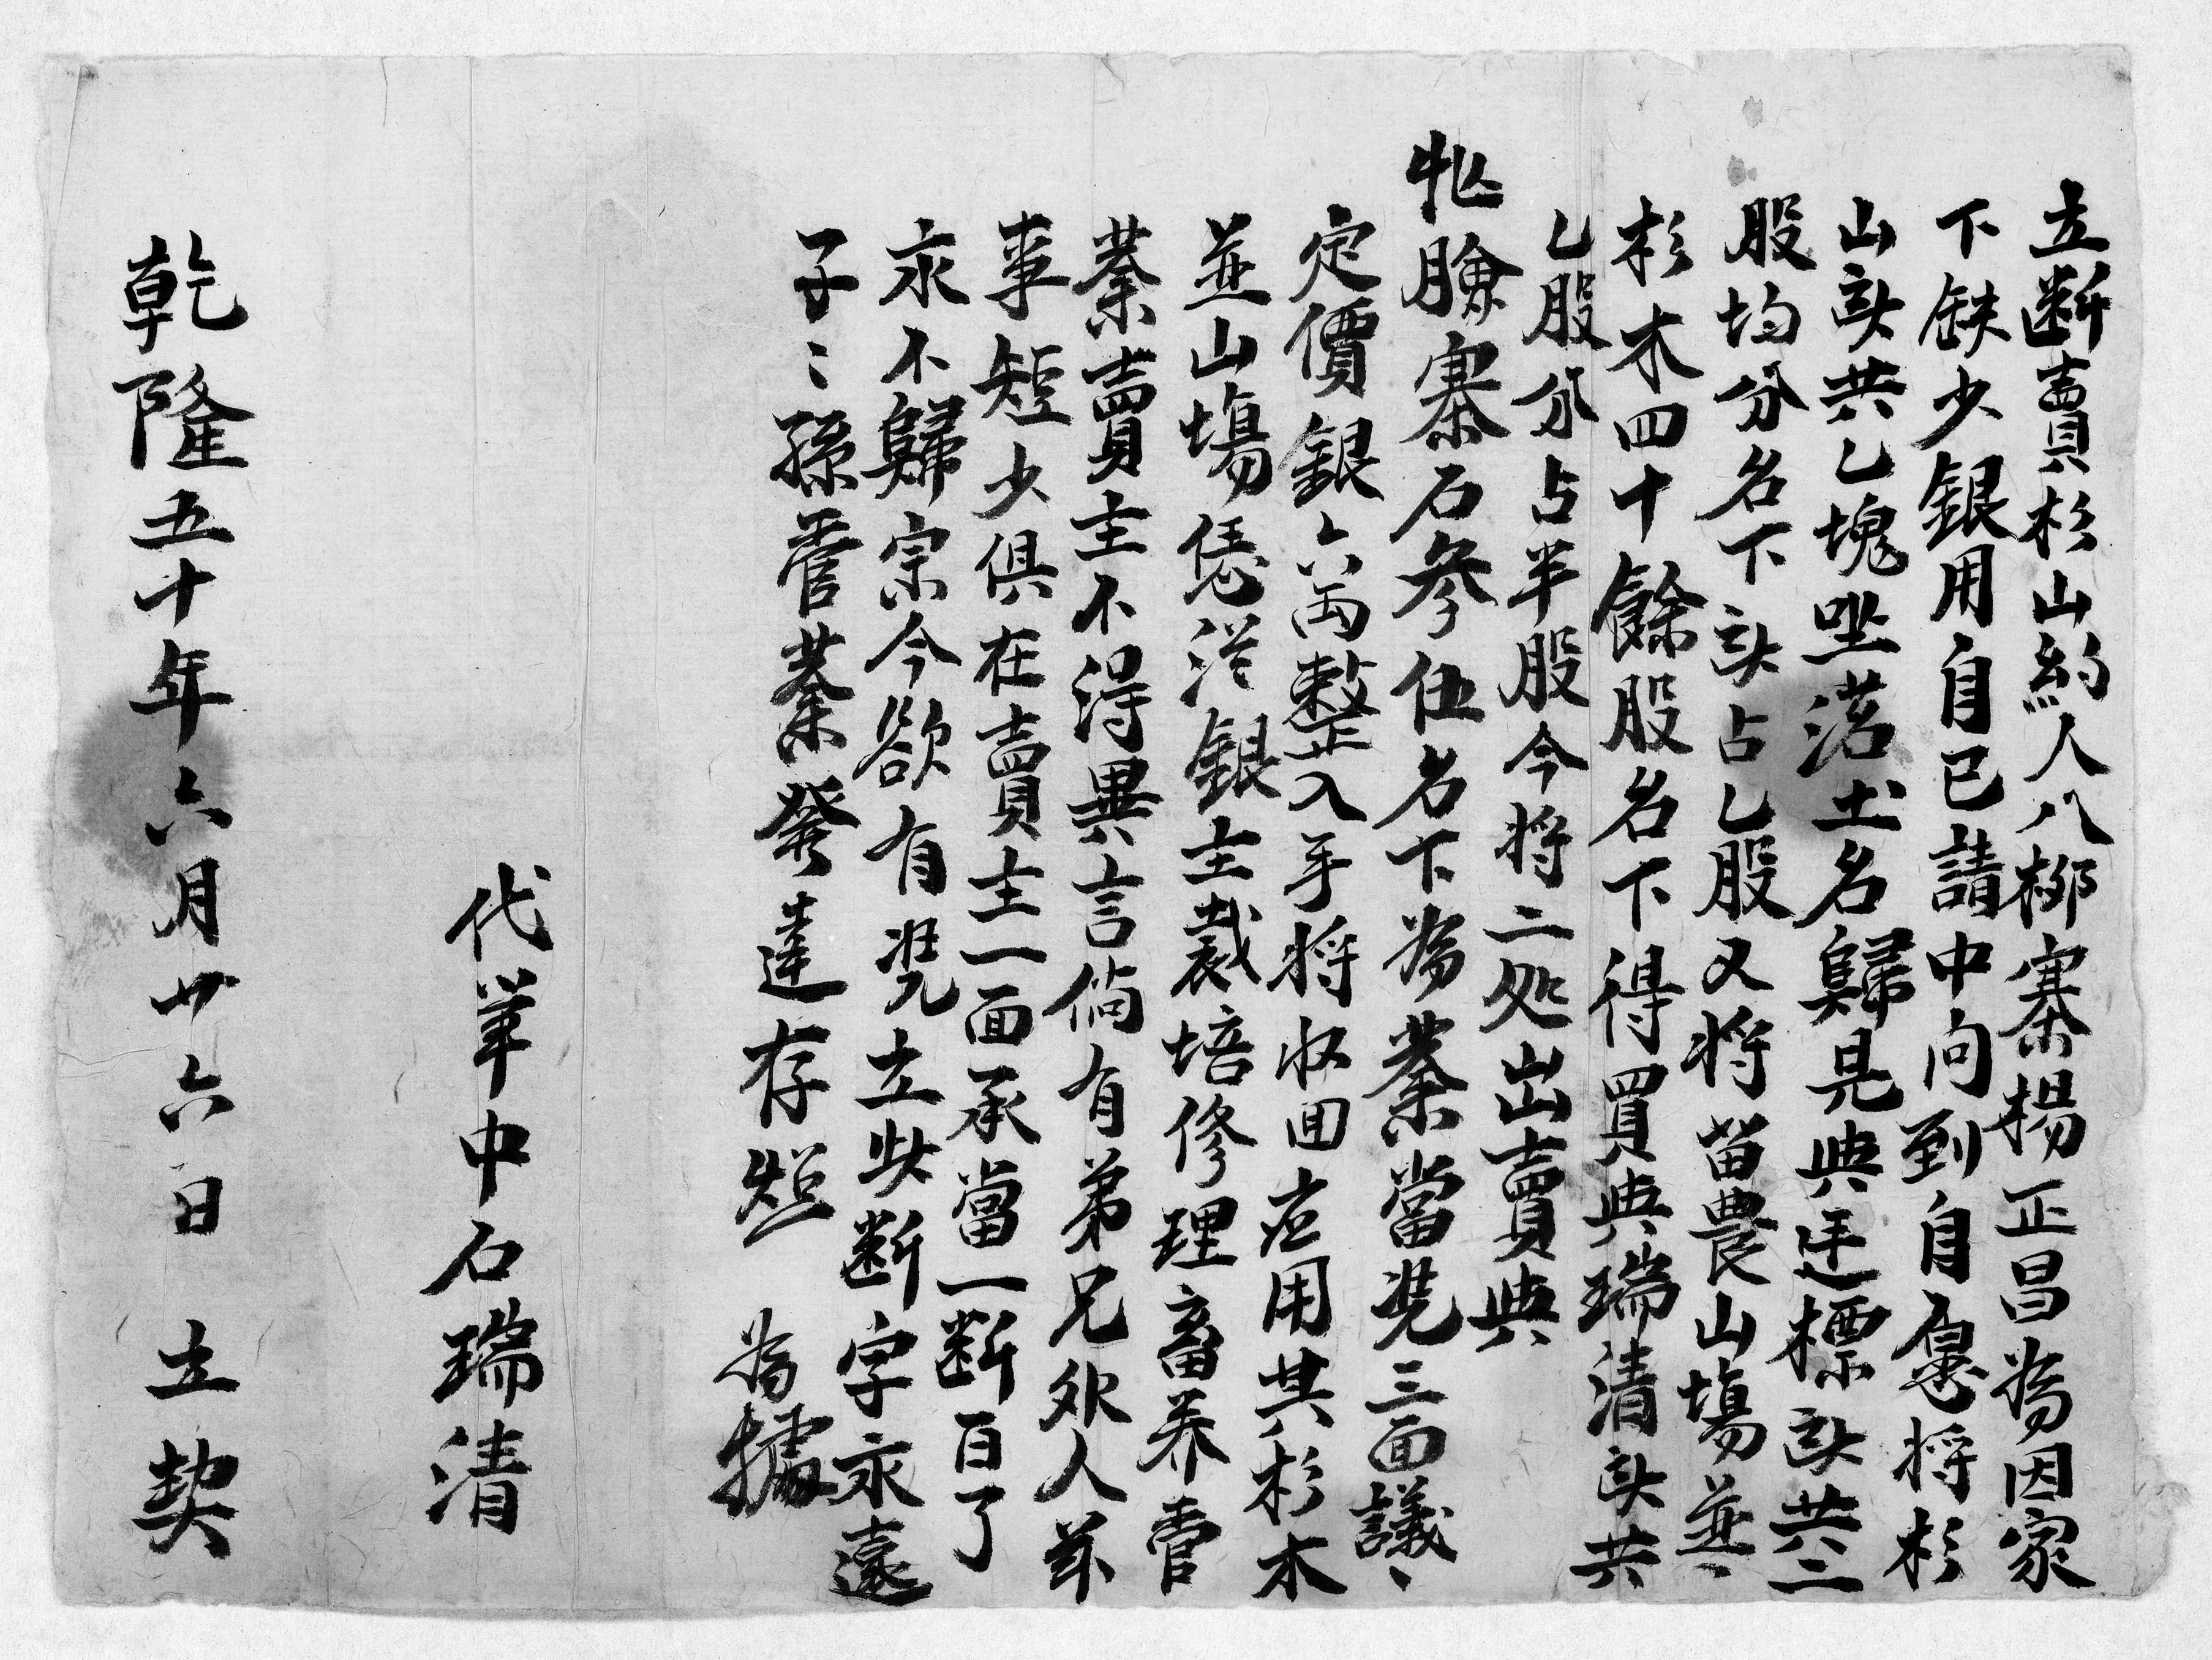 立斷賣杉山約人八椰寨楊正昌為因家
下缺少銀用自己請中向到自愿将杉
山㪽共乙塊坐落土名歸晃典迋標㪽共二
股均分名下㪽占乙股又将苗農山塲並
杉木四十餘股名下得買典瑞清㪽共
乙股分占半股今将二処出賣典
臉寨石參伍名下為業當凴三面議、
定價銀六両整入手将收回应用其杉木
並山塲凴從銀主裁培修理畜养管
業賣主不得異言倘有弟兄外人并
事短少俱在賣主一面承當一断百了
永不歸宗今欲有凴立此断字永遠
子〻孫管業發達存照 為據
代筆中石瑞清
乾隆五十年六月廿六日 立契